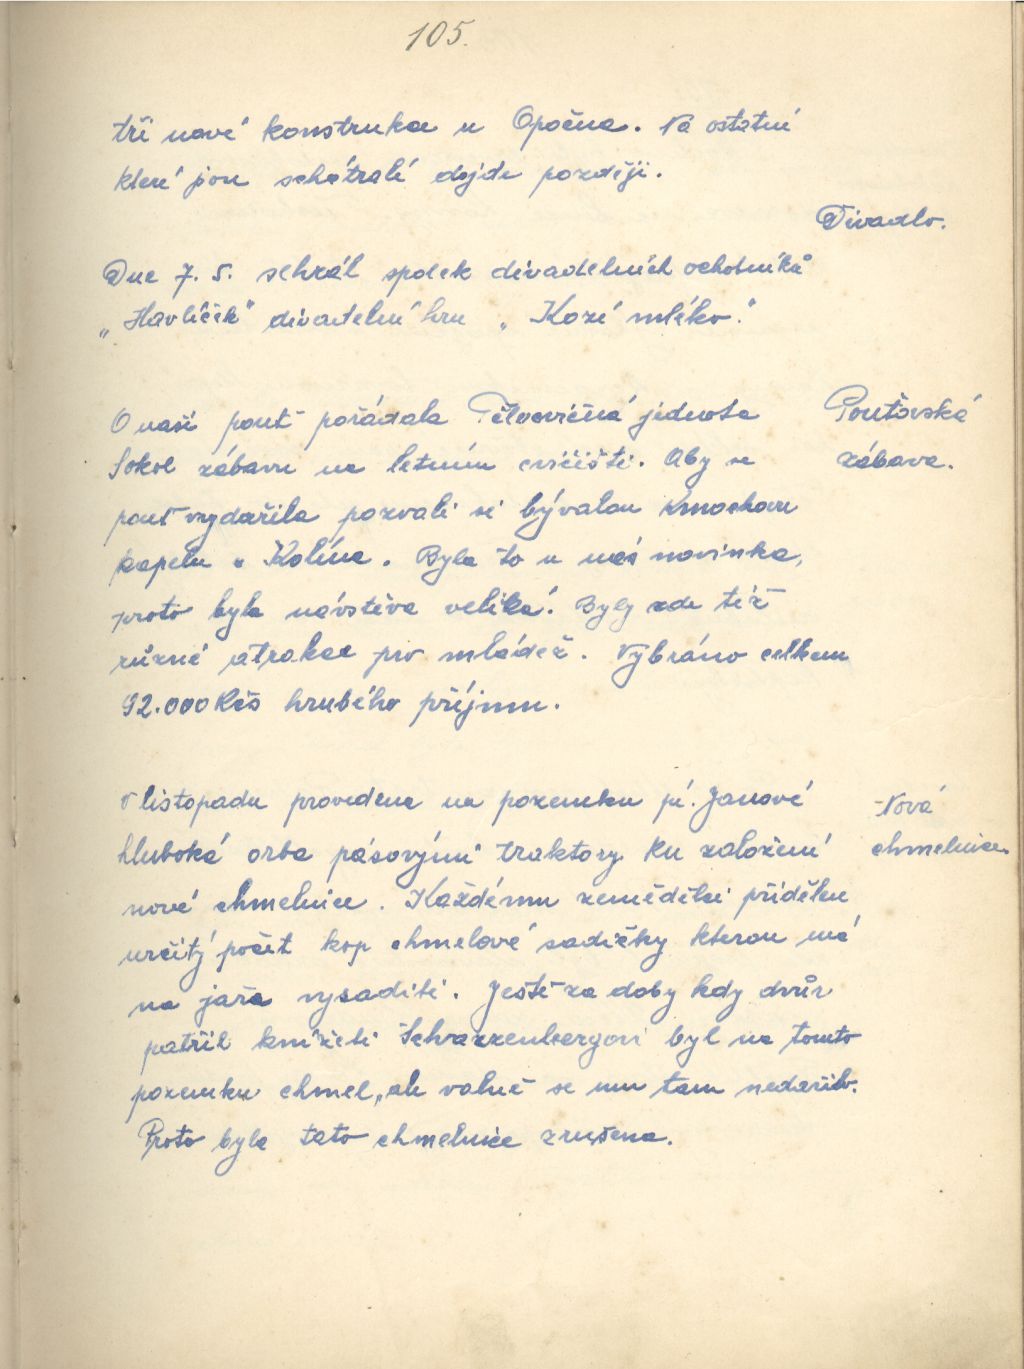 105.
tři nové konstrukce u Opočna. Na ostatní
které jsou schátralé dojde později.
Divadlo.
Dne 7. 5. sehrál spolek divadelních ochotníků
„Havlíček" divadelní hru „Kozí mléko."
O naší pouti pořádala Tělocvičná jednota
Poutovská
Sokol zábavu na letním cvičišti. Aby se
zábava.
pouť vydařila pozvali si bývalou Kmochovu
kapelu z Kolína. Byla to u nás novinka,
proto byla návstěva veliká. Byly zde též
různé atrakce pro mládež. Vybráno celkem
92.000 Kčs hrubého příjmu.
V listopadu provedena na pozemku Janové
Nová
hluboká orba pásovými traktory ku založení
chmelnice.
nové chmelnice. Každému zemědělci přidělen
určitý počet kop chmelové sadičky kterou má
na jaře vysaditi. Ještě za doby kdy dvůr
patřil knížeti Schwarzenbergovi byl na tomto
pozemku chmel, ale valně se mu tam nedařilo.
Proto byla tato chmelnice zrušena.